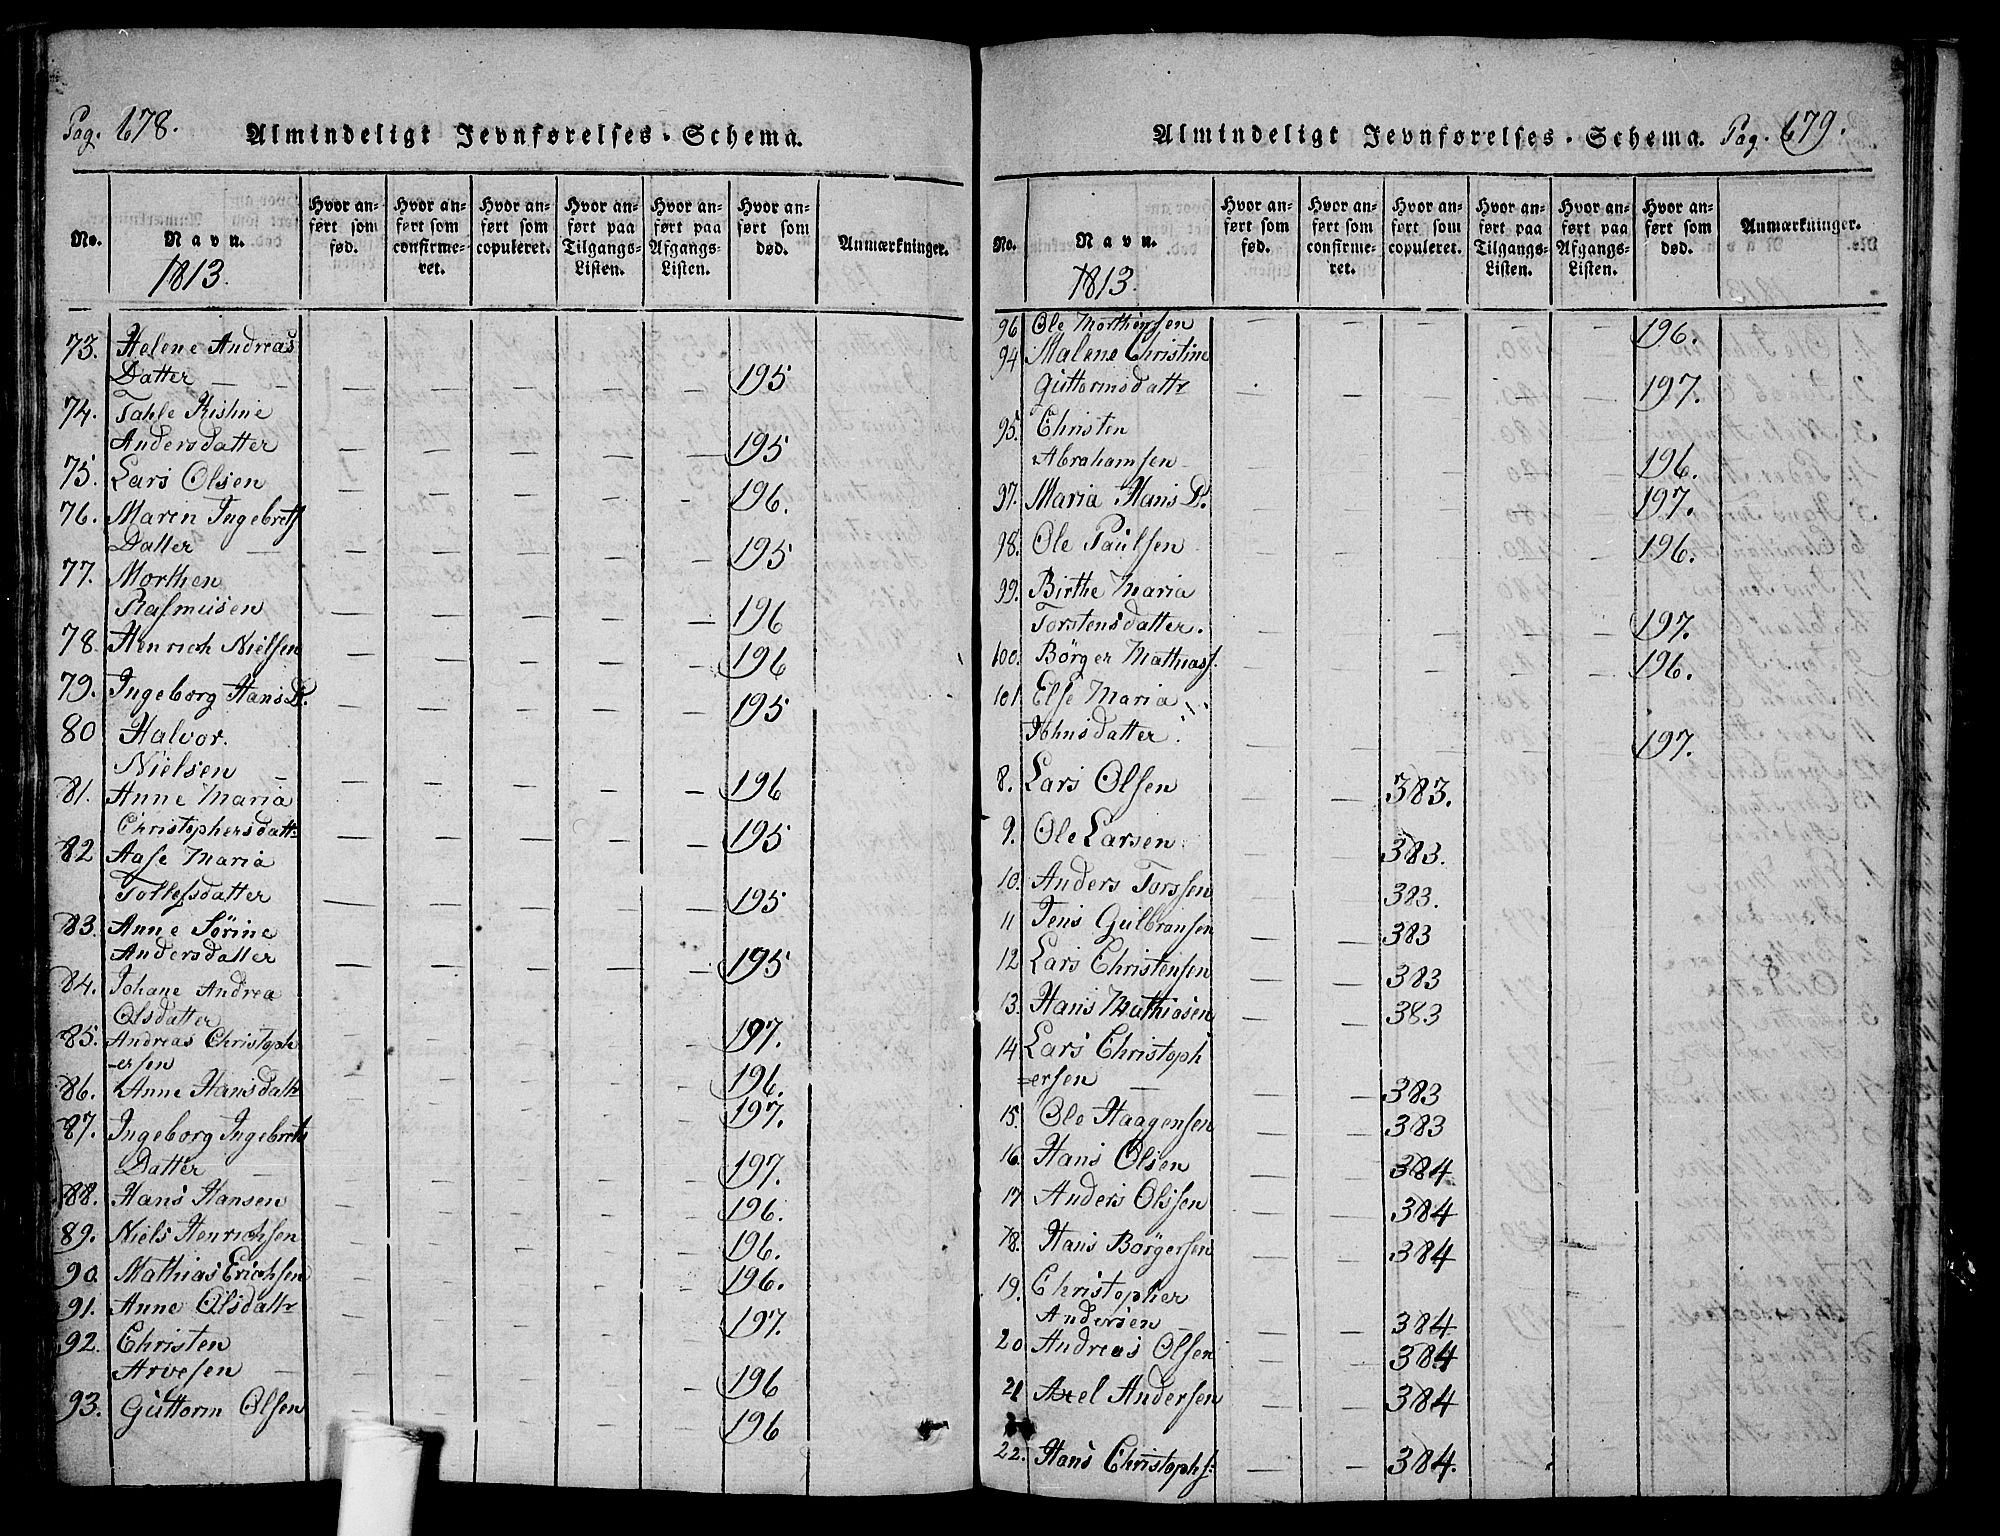 Pag. 678.
Almindeligt Jevnførelses-Schema.
No.
Navn.
1813.
Hvor anført som fød.
Hvor anført som confirmeret.
Hvor anført som copuleret.
Hvor anført paa Tilgangs-Listen.
Hvor anført paa Afgangs-Listen.
Hvor anført som død.
Anmærkninger.
73. Helene Andreas
Datter — — — — — — 195
74. Tahle Kistine
Andersdatter — — — — — 195
75. Lars Olsen — — — — — 196.
76. Maren Ingebrets
Datter — — — — — — 195
77. Morthen
Rasmusen — — — — — 196
78. Henrich Nielsen — — — — — 196
79. Ingeborg Hans D. — — — — — 195
80 Halvor
Nielsen — — — — — — 196
81. Anne Maria
Christophersdattr — — — — — 195
82 Aase Maria
Tollefsdatter — — — — — 195
83. Anne Sörine
Andersdatter — — — — — 195
84. Johane Andrea
Olsdatter — — — — — 197.
85. Andreas Christoph
-ersen — — — — — 196.
86. Anne Hansdattr — — — — — 197.
87. Ingeborg Ingebrets
Datter — — — — — — 197.
88. Hans Hansen — — — — — 196.
89. Niels Henrichsen — — — — — 196.
90. Mathias Erichsen — — — — — 196.
91. Anne Olsdattr — — — — — 197.
92. Christen
Arvesen — — — — — — 196
93. Guttorm Olsen — — — — — 196
Almindeligt Jevnførelses-Schema. Pag. 679.
No.
Navn.
1813.
Hvor anført som fød.
Hvor anført som confirmeret.
Hvor anført som copuleret.
Hvor anført paa Tilgangs-Listen.
Hvor anført paa Afgangs-Listen.
Hvor anført som død.
Anmærkninger.
96 Ole Morthensen — — — — — 196.
94 Malene Christine
Guttormsdattr — — — — — 197.
95. Christen
Abrahamsen — — — — — 196.
97. Maria Hans D. — — — — — 197.
98. Ole Paulsen — — — — — 196.
99. Birthe Maria
Torstensdatter. — — — — — 197.
100. Börger Mathiass. — — — — — 196.
101 Else Maria
Johnsdatter — — — — — 197.
8. Lars Olsen — — 383.
9. Ole Larsen — — 383.
10. Anders Torssen — — 383.
11 Jens Gulbransen — — 383
12 Lars Christensen — — 383
13. Hans Mathiasen — — 383
14 Lars Christoph
=ersen — — — 383
15. Ole Haagensen — — 383
16. Hans Olsen — — 384.
17 Anders Olssen — — 384
18. Hans Börgersen — — 384
19. Christopher
Andersen — — 384
20 Andreas Olsen — — 384
21 Axel Andersen — — 384
22. Hans Christophs: — — 384.